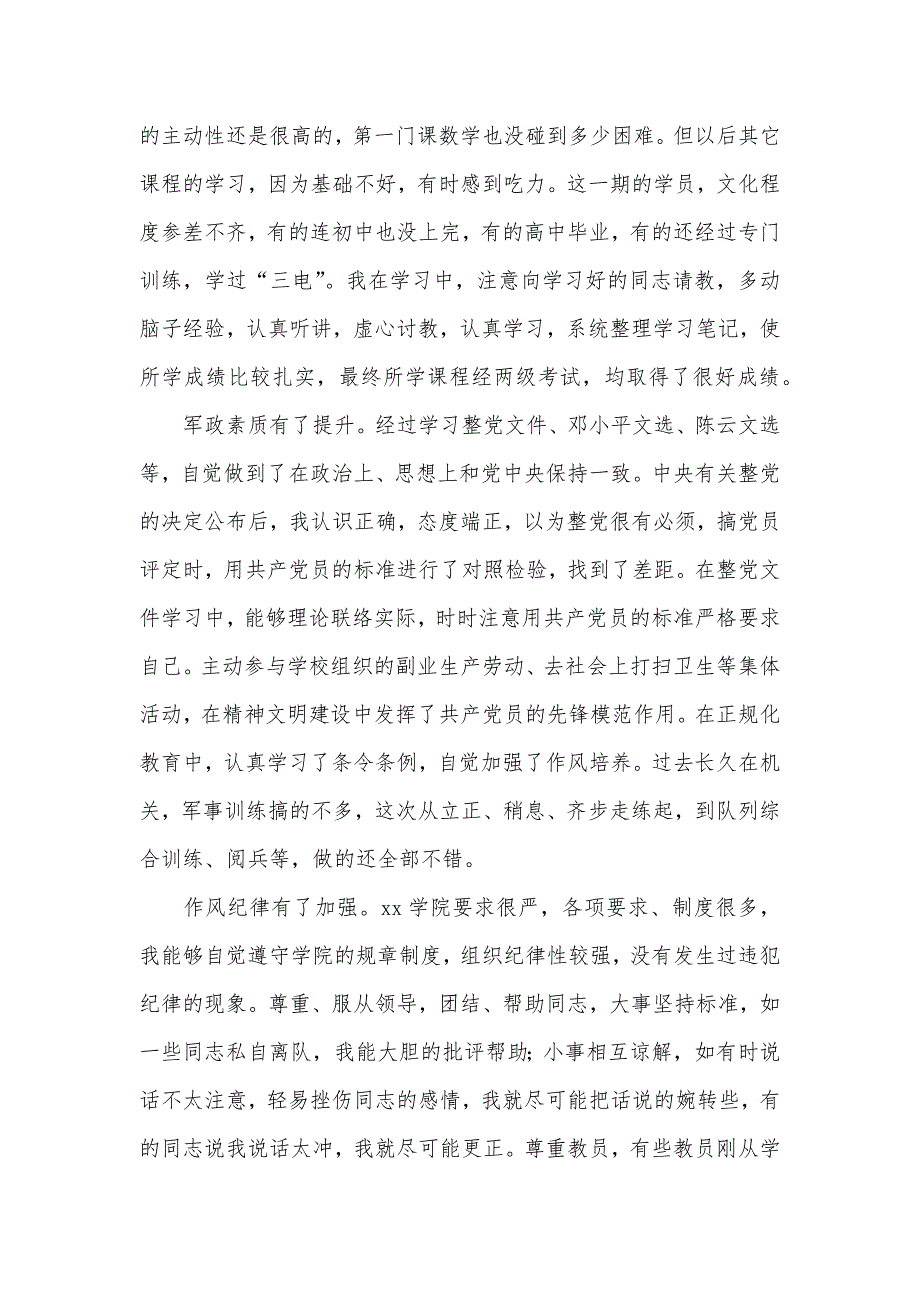 的主动性还是很高的，第一门课数学也没碰到多少困难。但以后其它
课程的学习，因为基础不好，有时感到吃力。这一期的学员，文化程
度参差不齐，有的连初中也没上完，有的高中毕业，有的还经过专门
训练，学过“三电”。我在学习中，注意向学习好的同志请教，多动
脑子经验，认真听讲，虚心讨教，认真学习，系统整理学习笔记，使
所学成绩比较扎实，最终所学课程经两级考试，均取得了很好成绩。
军政素质有了提升。经过学习整党文件、邓小平文选、陈云文选
等，自觉做到了在政治上、思想上和党中央保持一致。中央有关整党
的决定公布后，我认识正确，态度端正，以为整党很有必须，搞党员
评定时，用共产党员的标准进行了对照检验，找到了差距。在整党文
件学习中，能够理论联络实际，时时注意用共产党员的标准严格要求
自己。主动参与学校组织的副业生产劳动、去社会上打扫卫生等集体
活动，在精神文明建设中发挥了共产党员的先锋模范作用。在正规化
教育中，认真学习了条令条例，自觉加强了作风培养。过去长久在机
关，军事训练搞的不多，这次从立正、稍息、齐步走练起，到队列综
合训练、阅兵等，做的还全部不错。
作风纪律有了加强。xx 学院要求很严，各项要求、制度很多，
我能够自觉遵守学院的规章制度，组织纪律性较强，没有发生过违犯
纪律的现象。尊重、服从领导，团结、帮助同志，大事坚持标准，如
一些同志私自离队，我能大胆的批评帮助；小事相互谅解，如有时说
话不太注意，轻易挫伤同志的感情，我就尽可能把话说的婉转些，有
的同志说我说话太冲，我就尽可能更正。尊重教员，有些教员刚从学